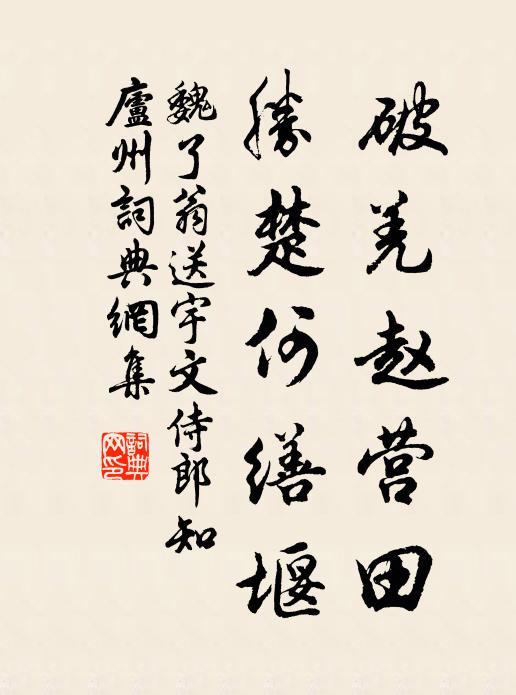 破羌赵营田
勝楚何缮堰
魏了翁送宇文侍郎知
廬州詞典網集
詞典网印